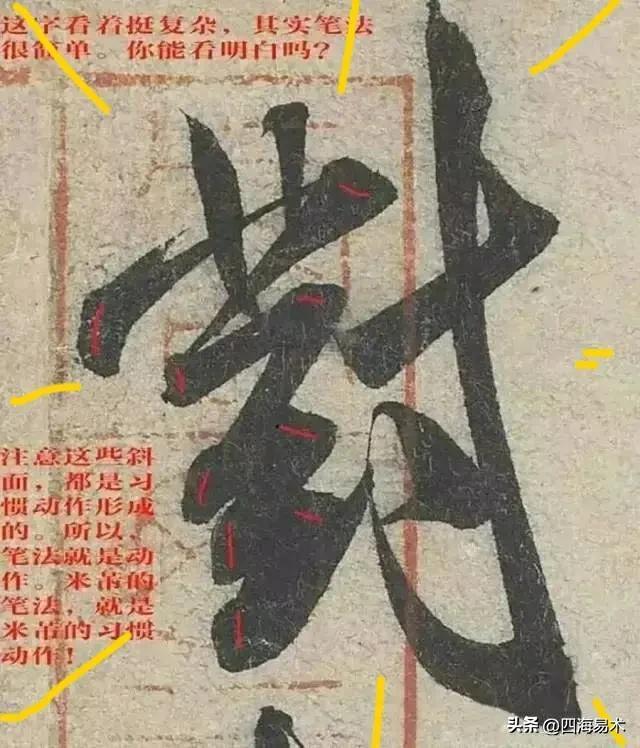 这字看着挺复杂，其实笔法
很简单。你能看明白吗？
對
注意这些斜
面，都是习
惯动作形成
的。所以、
笔法就是动
作。米芾的
笔法，就是
米芾的习惯
动作！
头条@四海易木